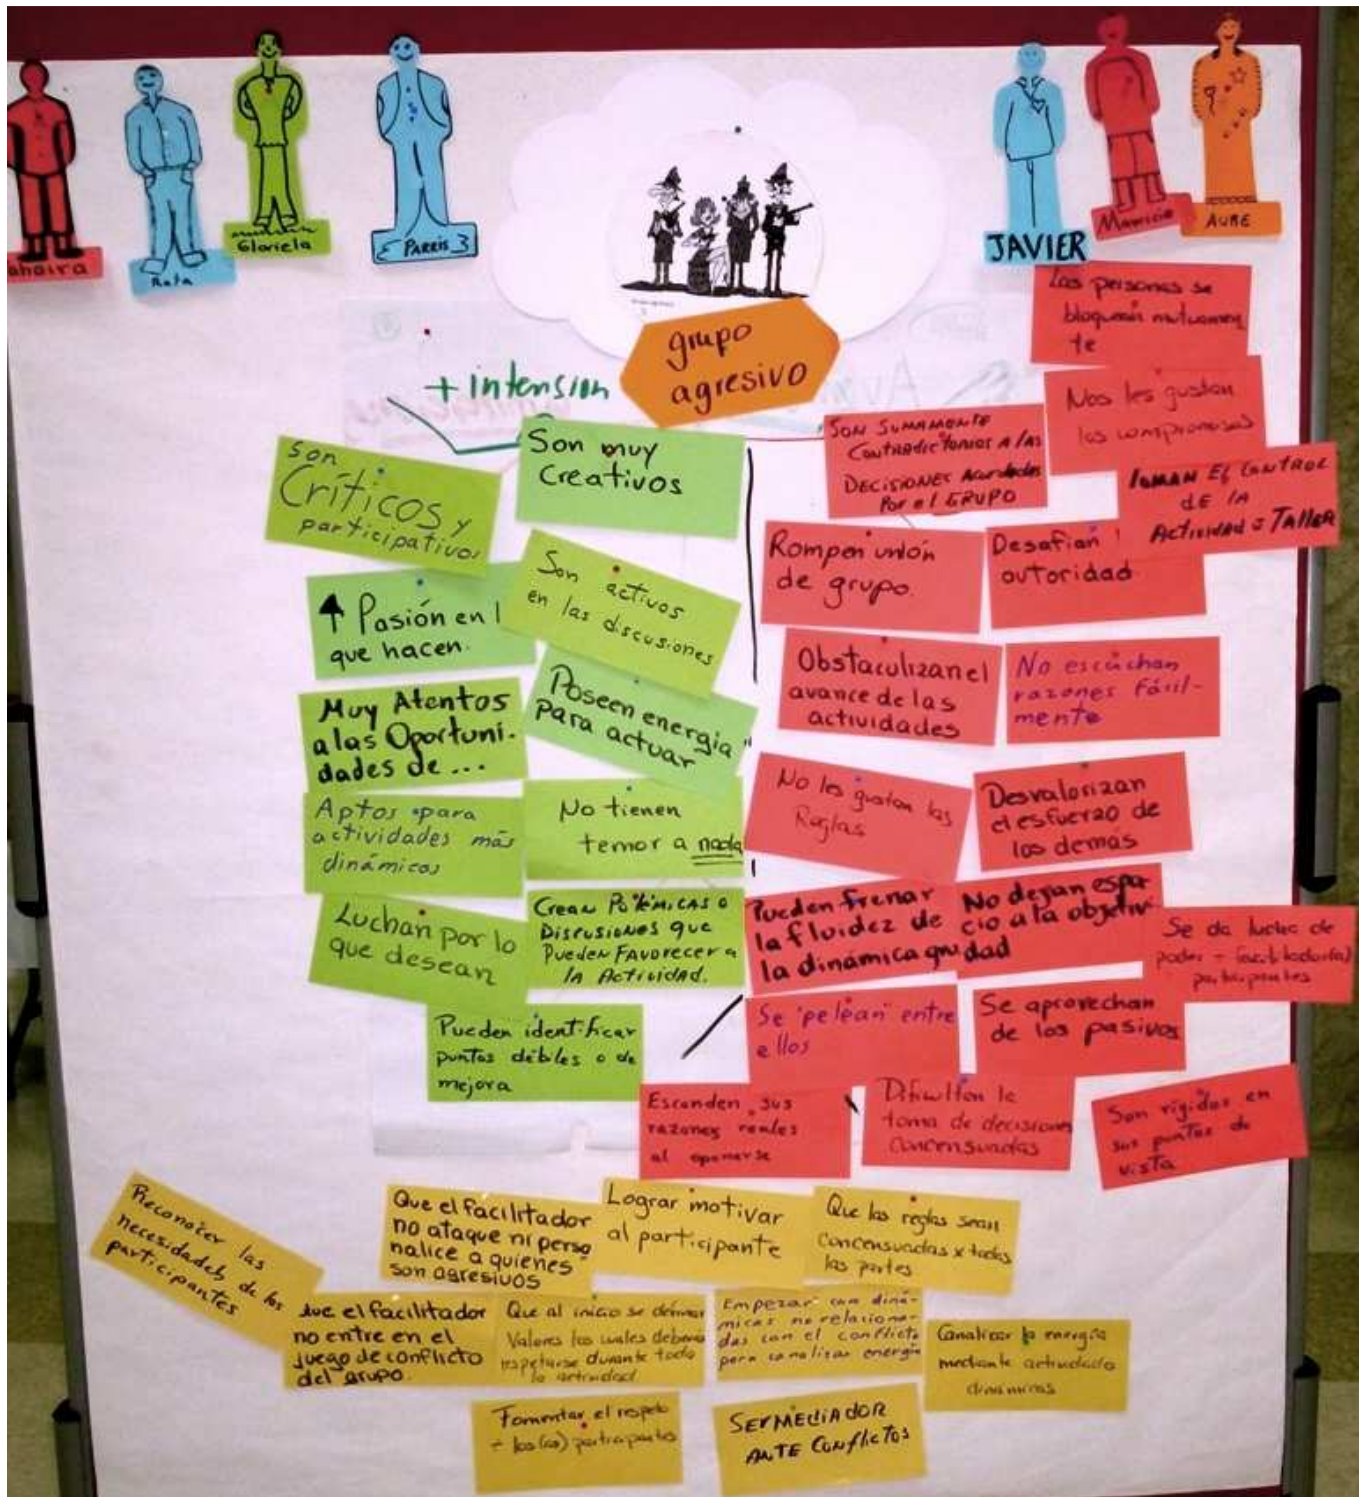 ahaira
Rafa
Gloriela
PARRIS
JAVIER
Mauricio
AURE
grupo
agresivo
+ intension
Son
Críticos y
participativos
Son muy
Creativos
Son activos
en las discusiones
↑ Pasión en l
que hacen.
Muy Atentos
a las Oportuni-
dades de...
Poseen energia
para actuar
Aptos para
actividades más
dinámicos
No tienen
temor a nada
Luchan por lo
que desean
Crean Polémicas o
Discusiones que
Pueden Favorecer a
la Actividad.
Pueden identificar
puntos débiles o de
mejora
Las personas se
bloquean mutuamen
te
Nos les gustan
los compromisos
Son sumamente
Contradictorios a las
Decisiones Acordadas
Por el GRUPO
Toman El Control
de la
Actividad o Taller
Rompen unión
de grupo.
Desafian
autoridad
Obstaculizan el
avance de las
actividades
No escuchan
razones fácil-
mente
No les gustan las
Reglas
Desvalorizan
el esfuerzo de
los demás
Pueden frenar
la fluidez de
la dinámica gru
No dejan espa-
cio a la objetivi
dad
Se da lucha de
poder - facilitador(a)
participantes
Se "pelean" entre
ellos
Se aprovechan
de los pasivos
Esconden sus
razones reales
al oponerse
Dificultan la
toma de decisiones
concensuadas
Son rígidos en
sus puntos de
vista
Reconocer las
necesidades de los
participantes
Que el facilitador
no ataque ni perso
nalice a quienes
son agresivos
Lograr motivar
al participante
Que las reglas sean
concensuadas x todas
las partes
Que el facilitador
no entre en el
juego de conflicto
del grupo.
Que al inicio se definan
Valores los cuales deberán
respetarse durante toda
la actividad
Empezar con diná-
micas no relaciona-
das con el conflicto
para canalizar energía
Canalizar la energía
mediante actividades
dinámicas
Fomentar el respeto
- los(as) participantes
SER MEDIADOR
ANTE Conflictos